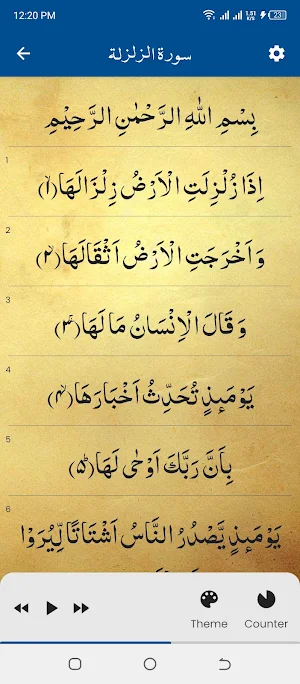 12:20 PM
1.51 K/s 23
سورة الزلزلة
بِسْمِ اللّٰهِ الرَّحْمٰنِ الرَّحِيْمِ
1
اِذَا زُلْزِلَتِ الْاَرْضُ زِلْزَالَهَا﴿۱﴾
2
وَ اَخْرَجَتِ الْاَرْضُ اَثْقَالَهَا﴿۲﴾
3
وَ قَالَ الْاِنْسَانُ مَا لَهَا﴿۳﴾
4
يَوْمَىِٕذٍ تُحَدِّثُ اَخْبَارَهَا﴿۴﴾
5
بِاَنَّ رَبَّكَ اَوْحٰى لَهَا﴿۵﴾
6
يَوْمَىِٕذٍ يَّصْدُرُ النَّاسُ اَشْتَاتًا لِّيُرَوْا
Theme Counter